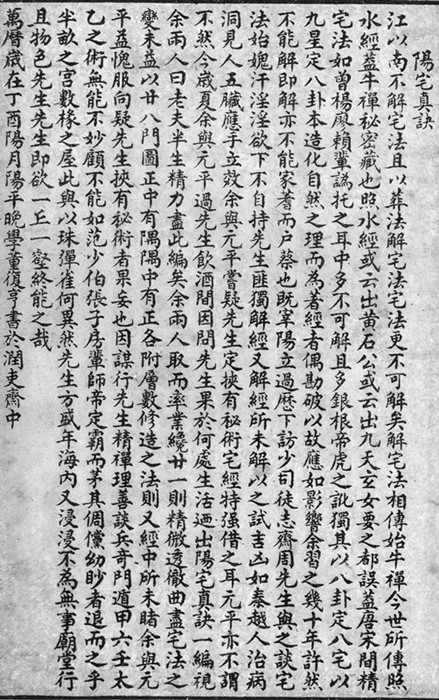 陽宅真訣
江以南不解宅法且以葬法解宅法宅法更不可解矣解宅法相傳始牛禪今世所傳照
水經蓋牛禪秘密藏也照水經或云出黄石公或云出九天玄女要之都誤蓋唐宋間精
宅法如曾楊廖賴輩譌托之耳中多不可解且多銀根帝虎之訛獨其以八卦定八宅以
九星定八卦本造化自然之理而為著經者偶勘破以故應如影響余習之幾十年許然
不能解即解亦不能家蓍而户蔡也既宰陽立過歷下訪少司徒志齋周先生與之談宅
法始媿汗淫淫欲下不自持先生匪獨解經又解經所未解以之試吉凶如秦越人治病
洞見人五臟應手立效余與元平嘗疑先生定挾有秘術宅經特强借之耳元平亦不謂
不然今歲夏余與元平過先生飲酒間因問先生果於何處生活迺出陽宅真訣一編視
余兩人曰老夫半生精力盡此編矣余兩人取而率業纔廿一則精微透徹曲盡宅法之
變末益以廿八門圖正中有隅隅中有正各附層數修造之法則又經中所未睹余與元
平益愧服向疑先生挾有秘術者果妄也因謀行先生精禪理善談兵奇門遁甲六壬太
乙之術無能不妙顧不能如范少伯張子房輩師帝定霸而茅其倜儻幼眇者退而之乎
半畝之宮數椽之屋此與以珠彈雀何異然先生方盛年海内又浸浸不為無事廟堂行
且物色先生先生即欲一丘一壑終能之哉
萬曆歲在丁酉陽月陽平晚學董復亨書於潤吏齋中